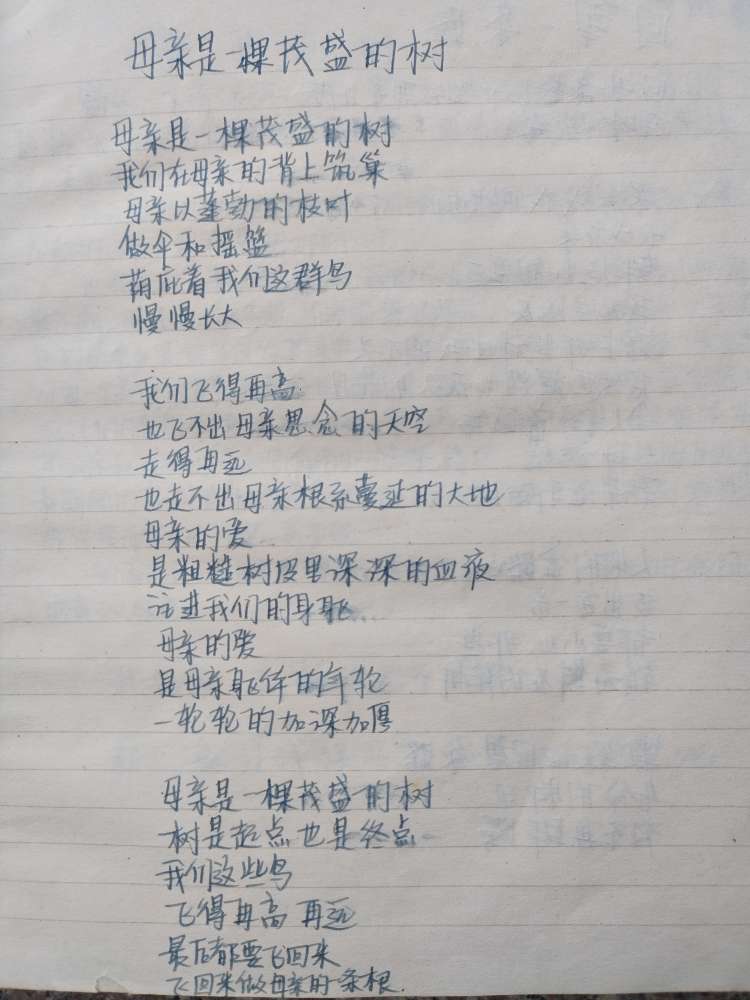 母亲是一棵茂盛的树
母亲是一棵茂盛的树
我们在母亲的背上筑巢
母亲以蓬勃的枝叶
做伞和摇篮
荫庇着我们这群鸟
慢慢长大
我们飞得再高
也飞不出母亲思念的天空
走得再远
也走不出母亲根系蔓延的大地
母亲的爱
是粗糙树皮里深深的血液
注进我们的身躯…
母亲的爱
是母亲身体的年轮
一轮轮的加深加厚
母亲是一棵茂盛的树
树是起点也是终点
我们这些鸟
飞得再高 再远
最后都要飞回来
飞回来做母亲的一条根.